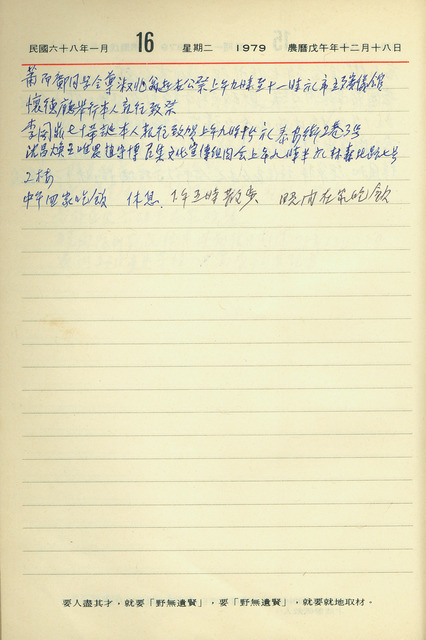 民國六十八年一月 16 星期二 1979 農曆戊午年十二月十八日
公祭上午九時至十一時於市立殯儀館
懷德廳舉行本人親往致祭
李國鼎七十華誕本人親往致賀上午九時於泰安街2巷3号
召集文化宣傳組內会上午九時半於林森北路七号
2樓
中午回家吃飯 休息 下午五時散步 晚间在家吃飯
要人盡其才，就要「野無遺賢」，要「野無遺賢」，就要就地取材。